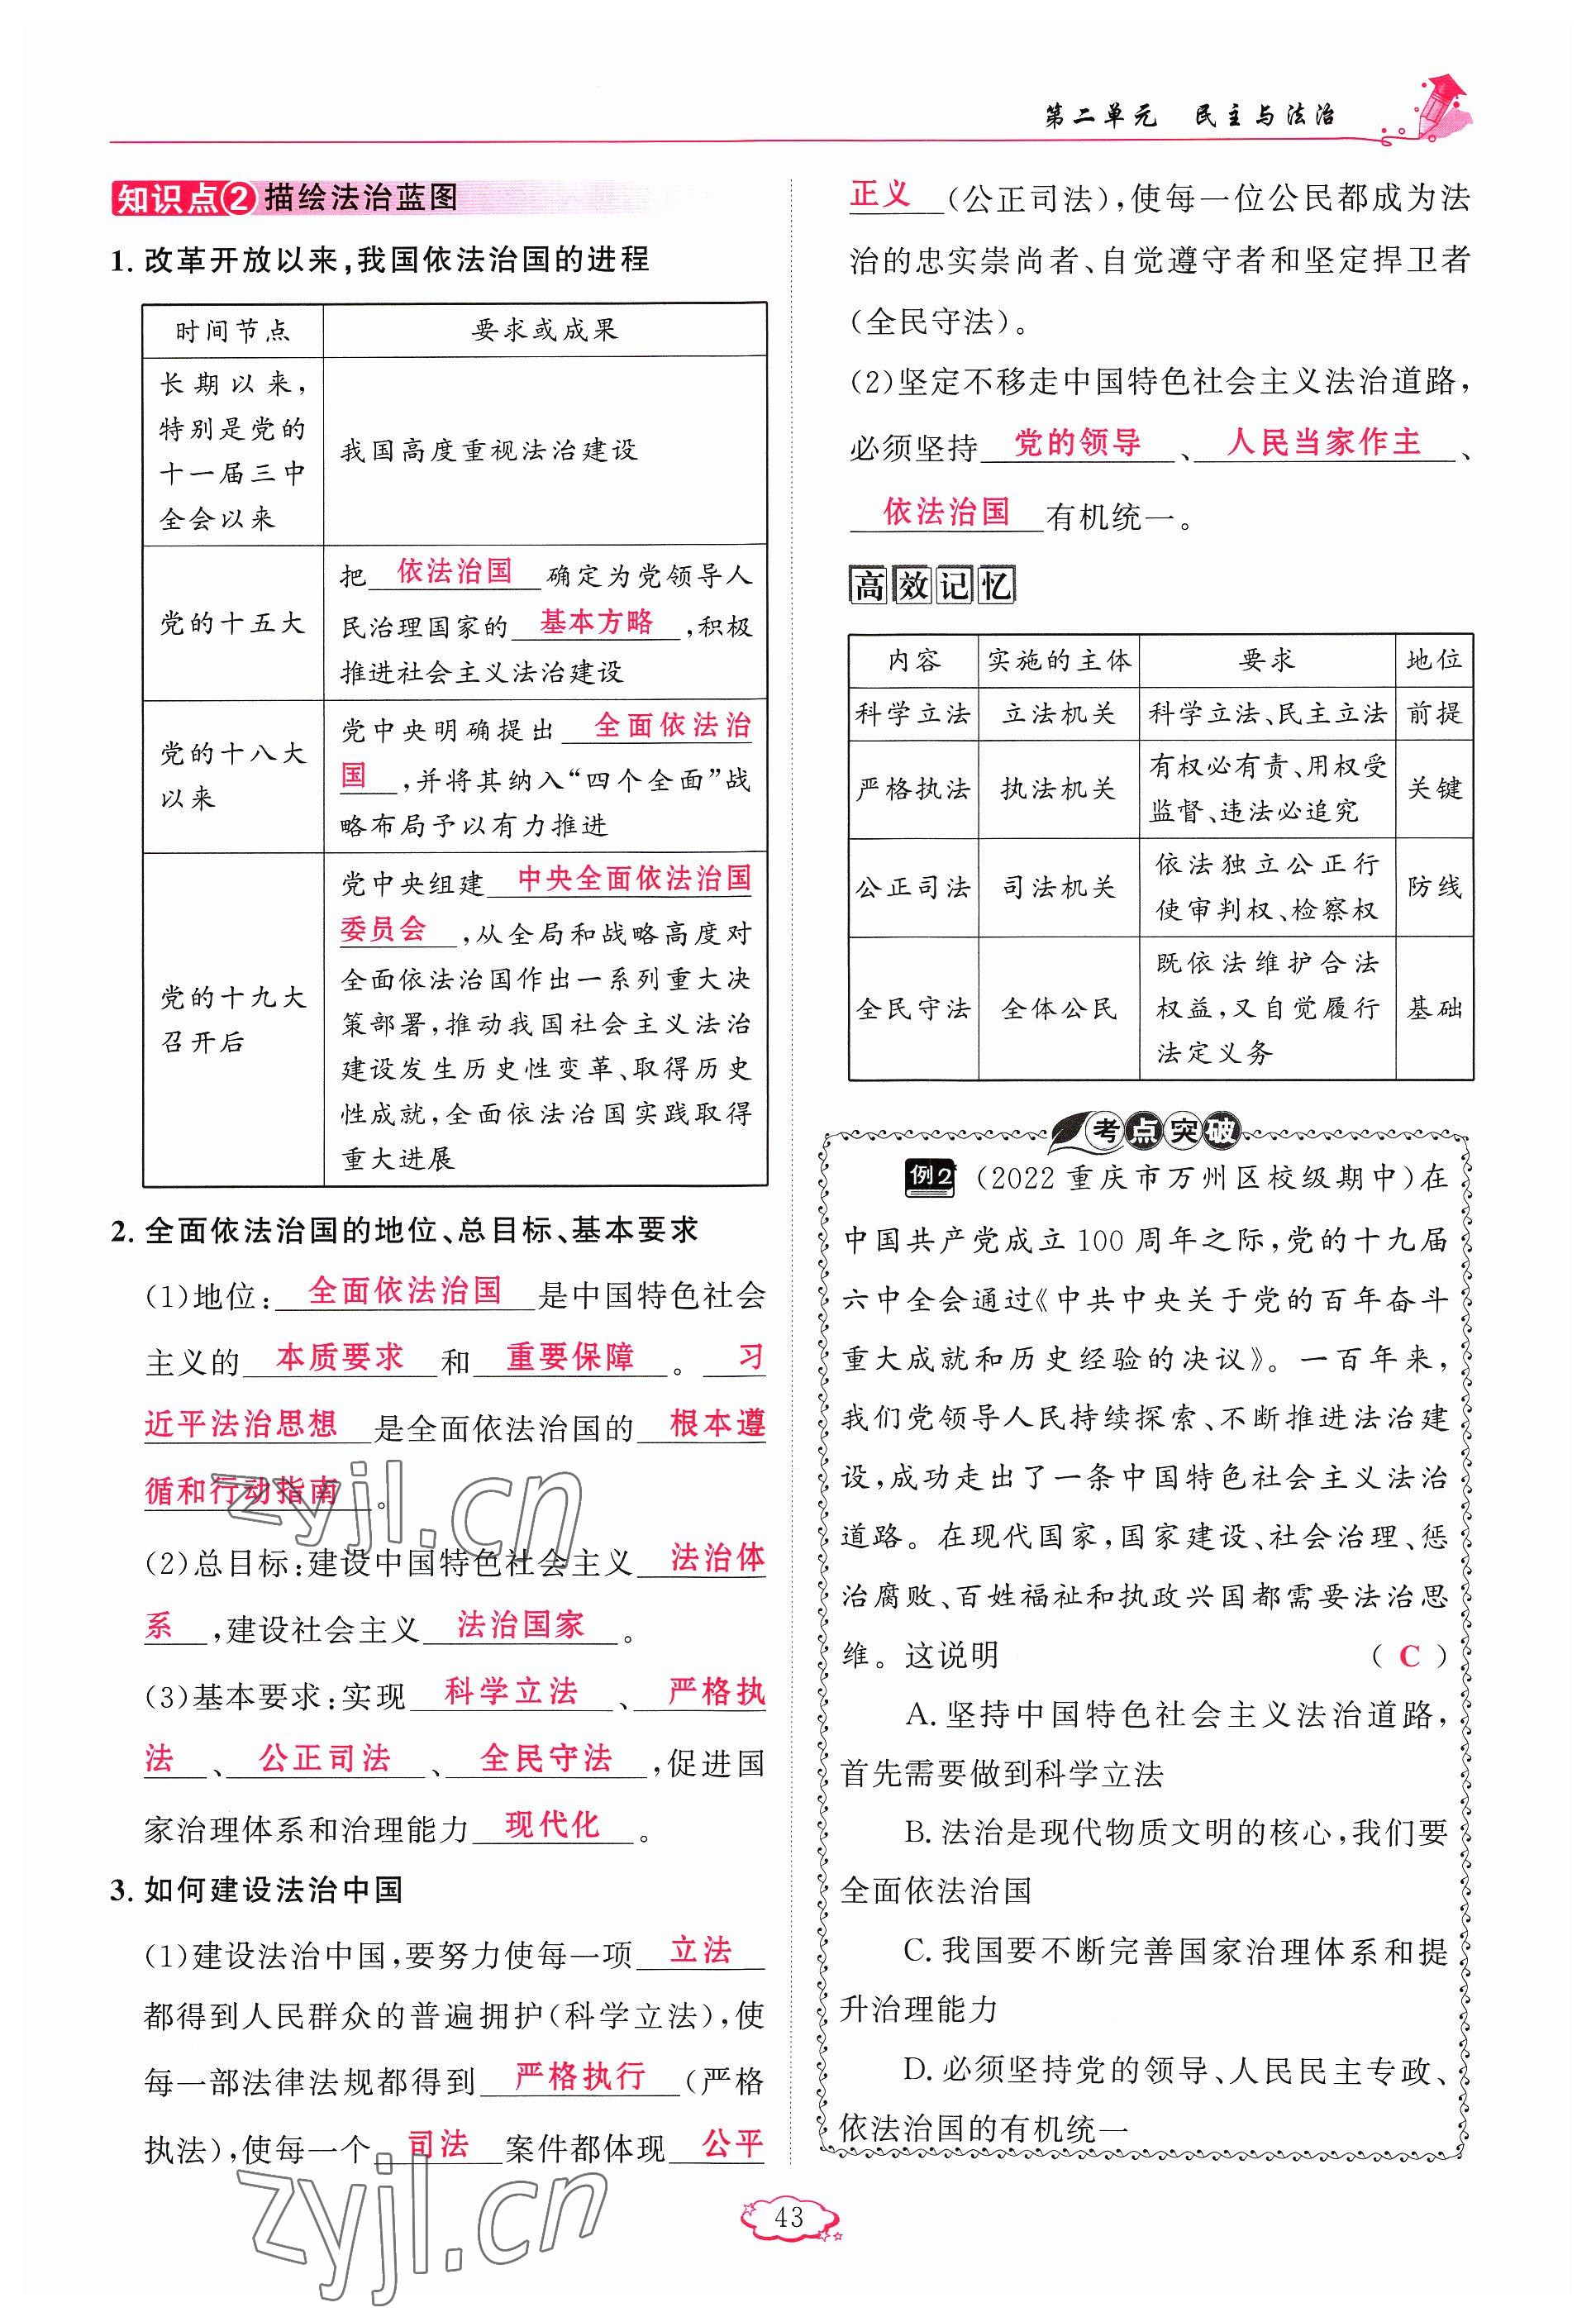 第二单元 民主与法治
知识点②描绘法治蓝图
1. 改革开放以来,我国依法治国的进程
时间节点 要求或成果
长期以来,
特别是党的
十一届三中
全会以来
我国高度重视法治建设
党的十五大
把 依法治国 确定为党领导人
民治理国家的 基本方略 ,积极
推进社会主义法治建设
党的十八大
以来
党中央明确提出 全面依法治
国 ,并将其纳入“四个全面”战
略布局予以有力推进
党的十九大
召开后
党中央组建 中央全面依法治国
委员会 ,从全局和战略高度对
全面依法治国作出一系列重大决
策部署,推动我国社会主义法治
建设发生历史性变革、取得历史
性成就,全面依法治国实践取得
重大进展
2. 全面依法治国的地位、总目标、基本要求
(1)地位: 全面依法治国 是中国特色社会
主义的 本质要求 和 重要保障 。 习
近平法治思想 是全面依法治国的 根本遵
循和行动指南 。
(2)总目标:建设中国特色社会主义 法治体
系 ,建设社会主义 法治国家 。
(3)基本要求:实现 科学立法 、 严格执
法 、 公正司法 、 全民守法 ,促进国
家治理体系和治理能力 现代化 。
3. 如何建设法治中国
(1)建设法治中国,要努力使每一项 立法
都得到人民群众的普遍拥护(科学立法),使
每一部法律法规都得到 严格执行 (严格
执法),使每一个 司法 案件都体现 公平
正义 (公正司法),使每一位公民都成为法
治的忠实崇尚者、自觉遵守者和坚定捍卫者
(全民守法)。
(2)坚定不移走中国特色社会主义法治道路,
必须坚持 党的领导 、 人民当家作主 、
依法治国 有机统一。
高效记忆
内容 实施的主体 要求 地位
科学立法 立法机关 科学立法、民主立法 前提
严格执法 执法机关 有权必有责、用权受
监督、违法必追究 关键
公正司法 司法机关 依法独立公正行
使审判权、检察权 防线
全民守法 全体公民 既依法维护合法
权益,又自觉履行
法定义务 基础
考点突破
例2 (2022重庆市万州区校级期中)在
中国共产党成立100周年之际,党的十九届
六中全会通过《中共中央关于党的百年奋斗
重大成就和历史经验的决议》。一百年来,
我们党领导人民持续探索、不断推进法治建
设,成功走出了一条中国特色社会主义法治
道路。在现代国家,国家建设、社会治理、惩
治腐败、百姓福祉和执政兴国都需要法治思
维。这说明 ( C )
A. 坚持中国特色社会主义法治道路,
首先需要做到科学立法
B. 法治是现代物质文明的核心,我们要
全面依法治国
C. 我国要不断完善国家治理体系和提
升治理能力
D. 必须坚持党的领导、人民民主专政、
依法治国的有机统一
zyjl.cn
zyjl.cn
43